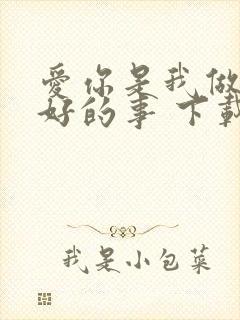 爱你是我做
好的事 下載
我是小包菜